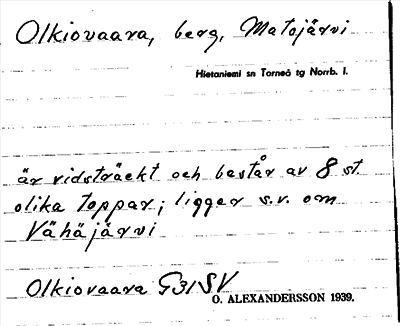 Olkiovaara, berg, Matojärvi
Hietaniemi sn Torneå tg Norrb. l.
är vidsträckt och består av 8 st.
olika toppar; ligger s.v. om
Vähäjärvi
Olkiovaara G31SV
O. ALEXANDERSSON 1939.